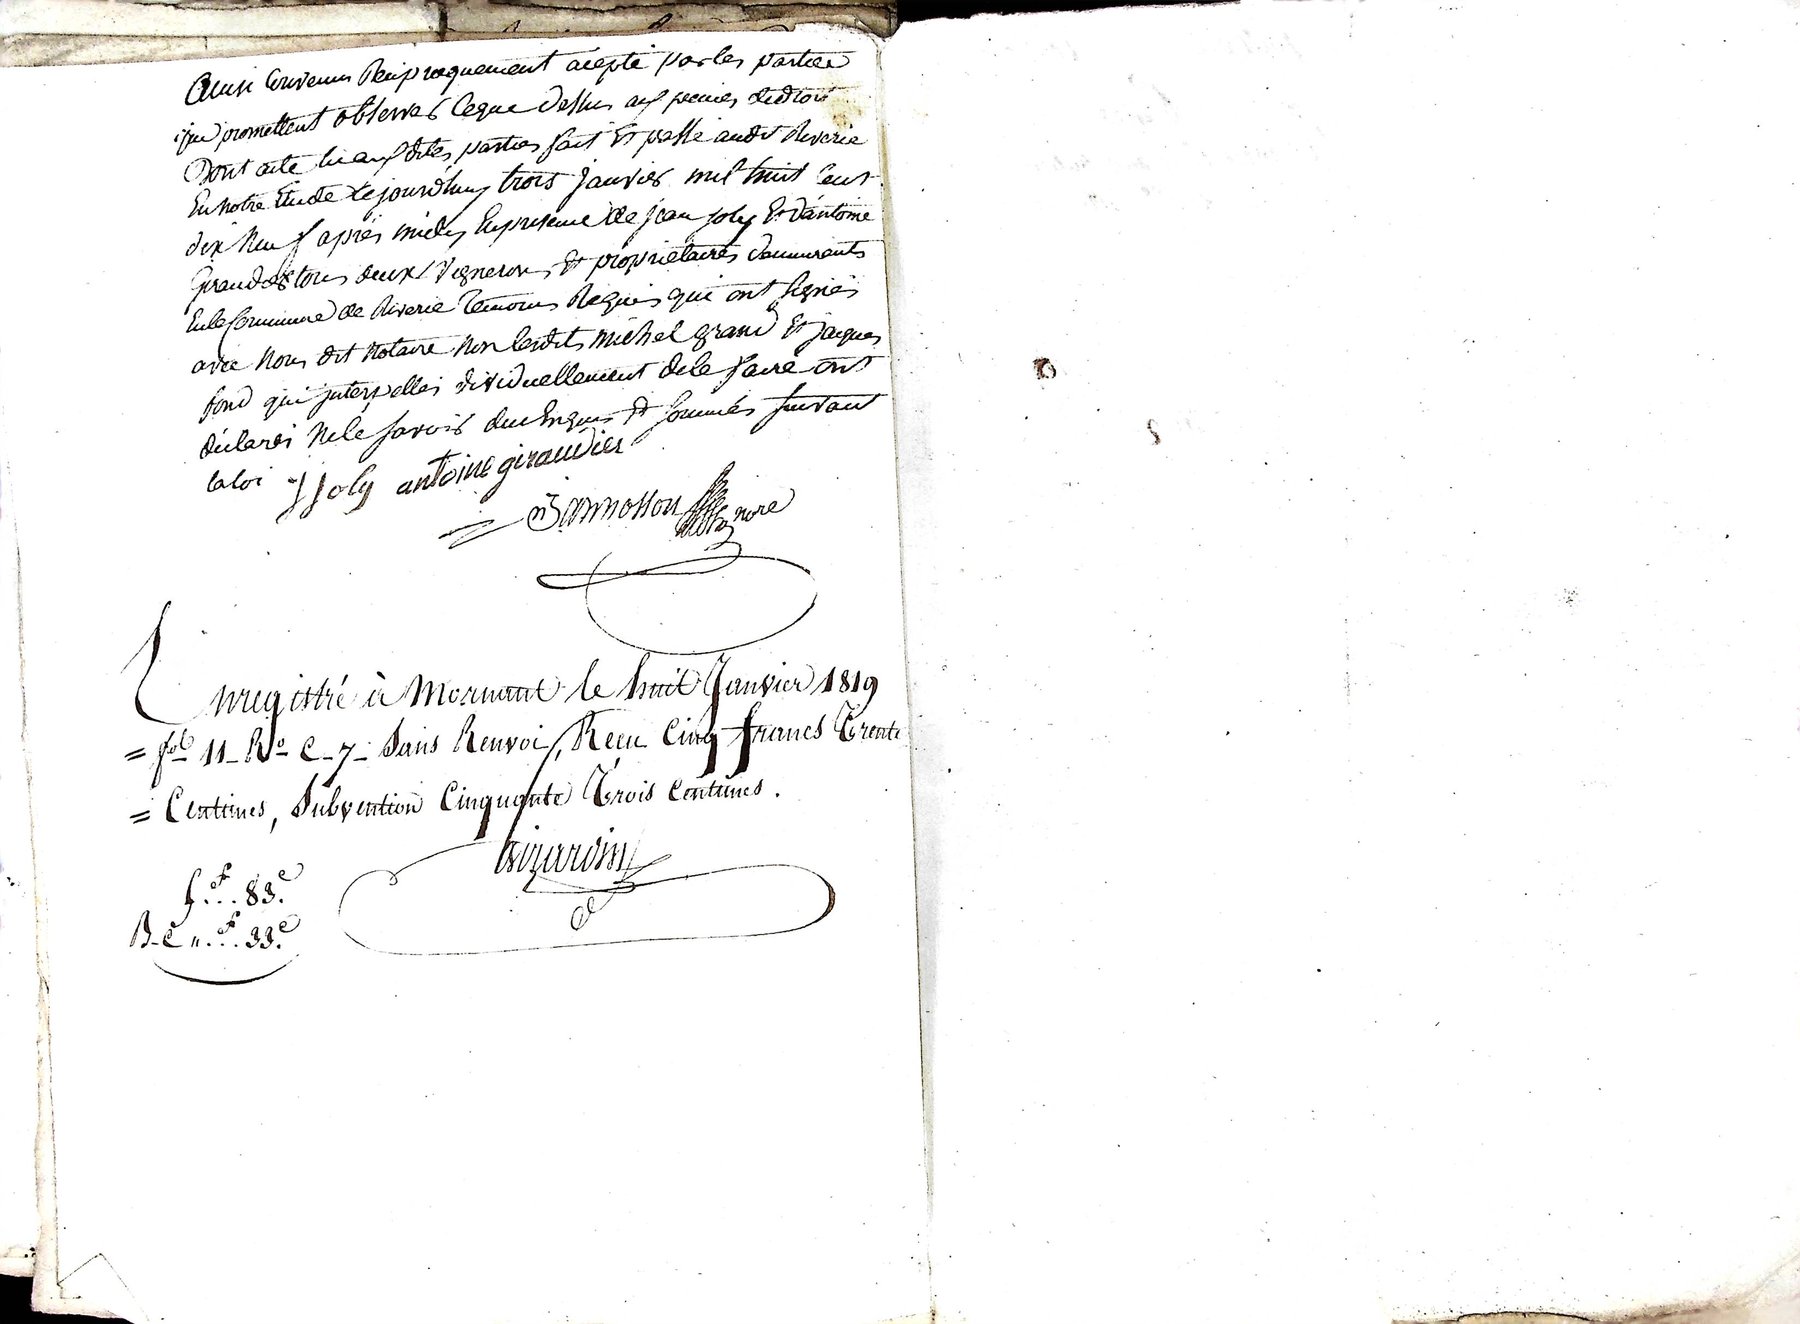 Ainsi Convenu Reciproquement acepté par les parties
qui promettent observer Ceque dessus aux peines dudroit
Dont acte lu auxdites parties fait et passé audit Riverie
En notre Etude Lejourdhuy trois janvier mil huit Cent
dix Neuf après midy Enpresence de jean joly Et d'antoine
Giraudier tous deux Vignerons et propriétaires demeurants
Enla Commune de Riverie Temoins Requis qui ont signés
avec Nous dit Notaire Non lesdits michel grand et jacques
fond qui interpellés dividuellement dele faire ont
déclarés Nele savoir duenquis et Sommés suivant
la loi J Joly antoine giraudier
nore
Enregistré à Mornant le huit Janvier 1819
= fol 11 Ro C 7 Sans Renvoi, Reçu Cinq francs Trente
= Centimes, Subvention Cinquante Trois Centimes.
83.c
33.c